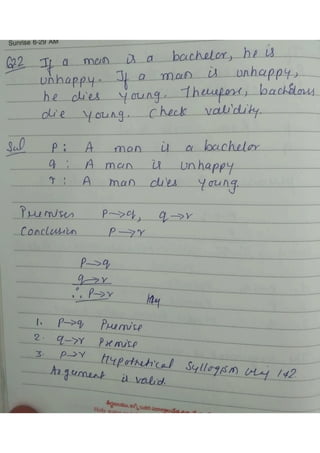 Sunrise 6-29 AM
Q2 If a man is a bachelor, he is
unhappy. If a man is unhappy,
he dies young. Therefore, bachelors
die young. Check validity.
Sol p: A man is a bachelor
q: A man is unhappy
r: A man dies young.
Premises p→q, q→r
Conclusion p→r
p→q
q→r
∴ p→r
1. p→q Premise
2. q→r Premise
3. p→r Hypothetical Syllogism using 1&2
Argument is valid